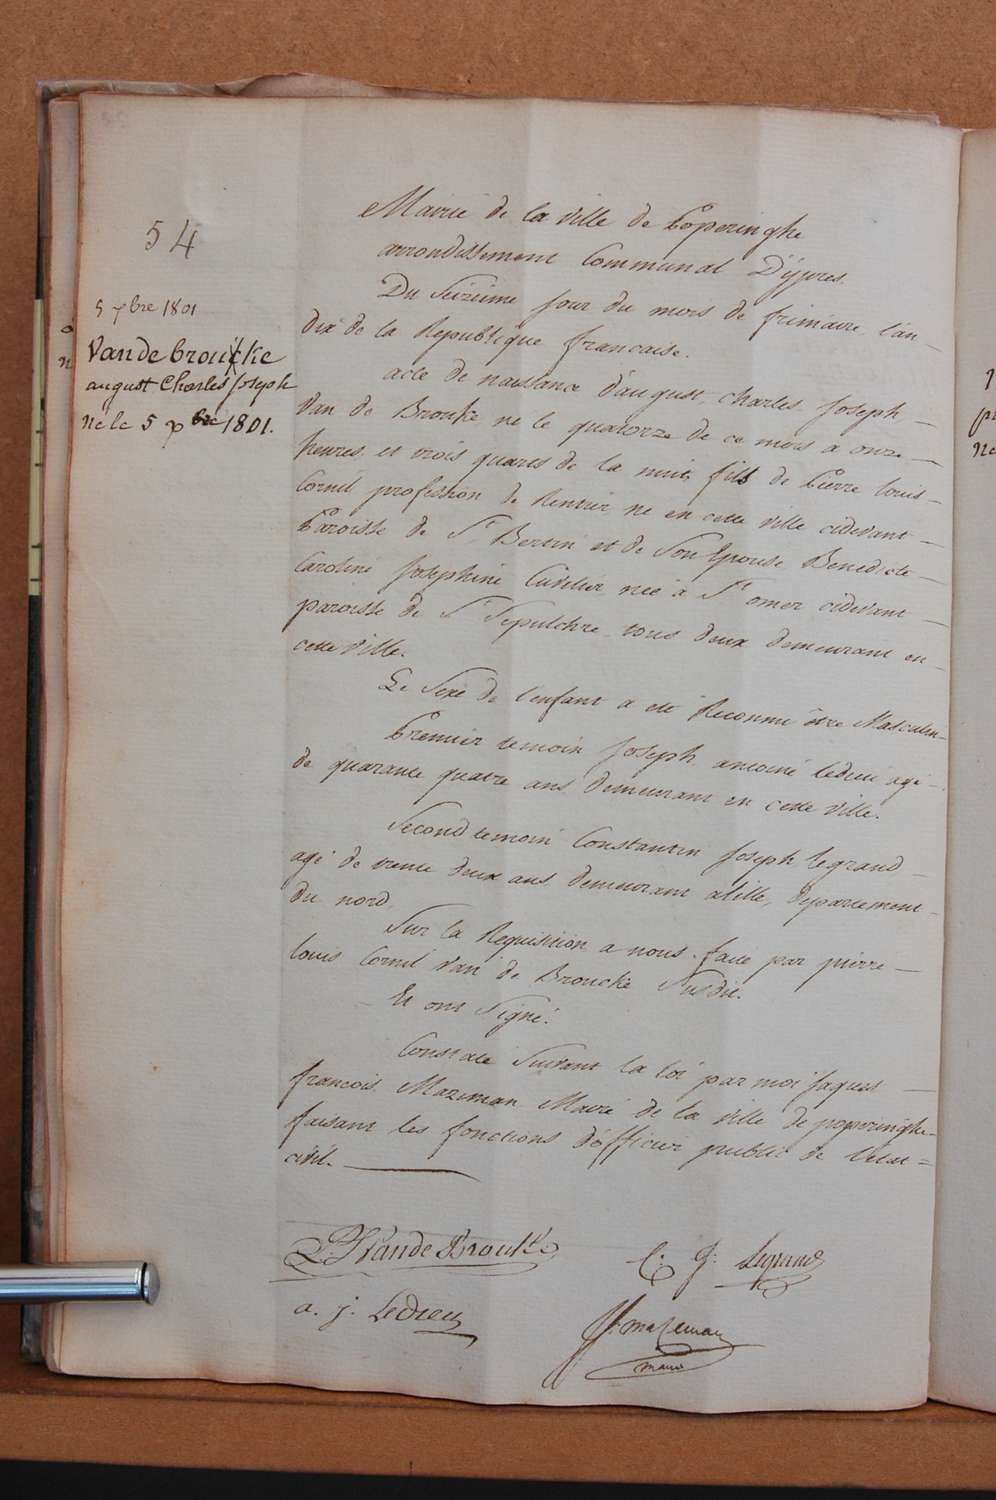 54
5 xbre 1801
Vandebroucke
august Charles Joseph
né le 5 xbre 1801.
Mairie de la ville de Poperinghe
arrondissement Communal D'ypres.
Du Seizieme jour du mois de frimaire l'an
dix de la Republique francaise.
acte de naissance d'august, charles, Joseph,
Van de Brouke né le quatorze de ce mois à onze
heures et trois quarts de la nuit, fils de Pierre Louis
Cornil profession de Rentier né en cette ville cidevant
Paroisse de St Bertin et de Son Epouse Benedicte
Caroline Josephine Cuvelier née à St omer cidevant
paroisse de St Sepulchre tous deux demeurant en
cette ville.
Le Sexe de l'enfant a été Reconnu être Masculin
Premier temoin Joseph antoine ledieu agé
de quarante quatre ans demeurant en cette ville.
Second temoin Constantin Joseph legrand
agé de trente deux ans demeurant a lille, département
du nord.
Sur la Requisition a nous faite par pierre
louis Cornil Van de Broucke Susdit.
Et ont Signé.
Constaté Suivant la loi par moi Jaques
francois Mazeman Maire de la ville de poperinghe
faisant les fonctions d'officier public de l'etat =
civil.
P. Vande Broucke
C. J. Legrand
a. j. Ledieu
J f. mazeman
maire